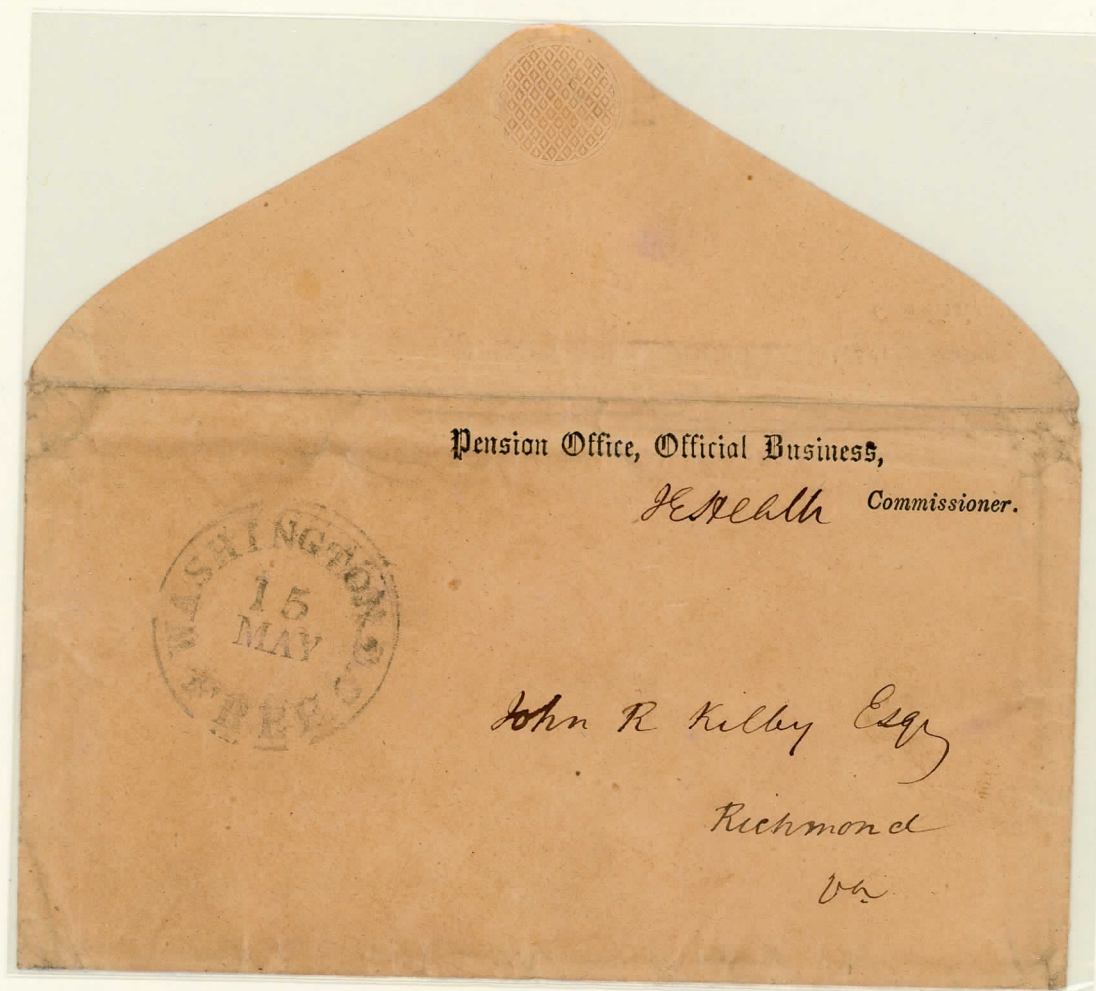 Pension Office, Official Business,
J E Heath Commissioner.
WASHINGTON D.C.
15
MAY
FREE
John R Kilby Esqr
Richmond
Va